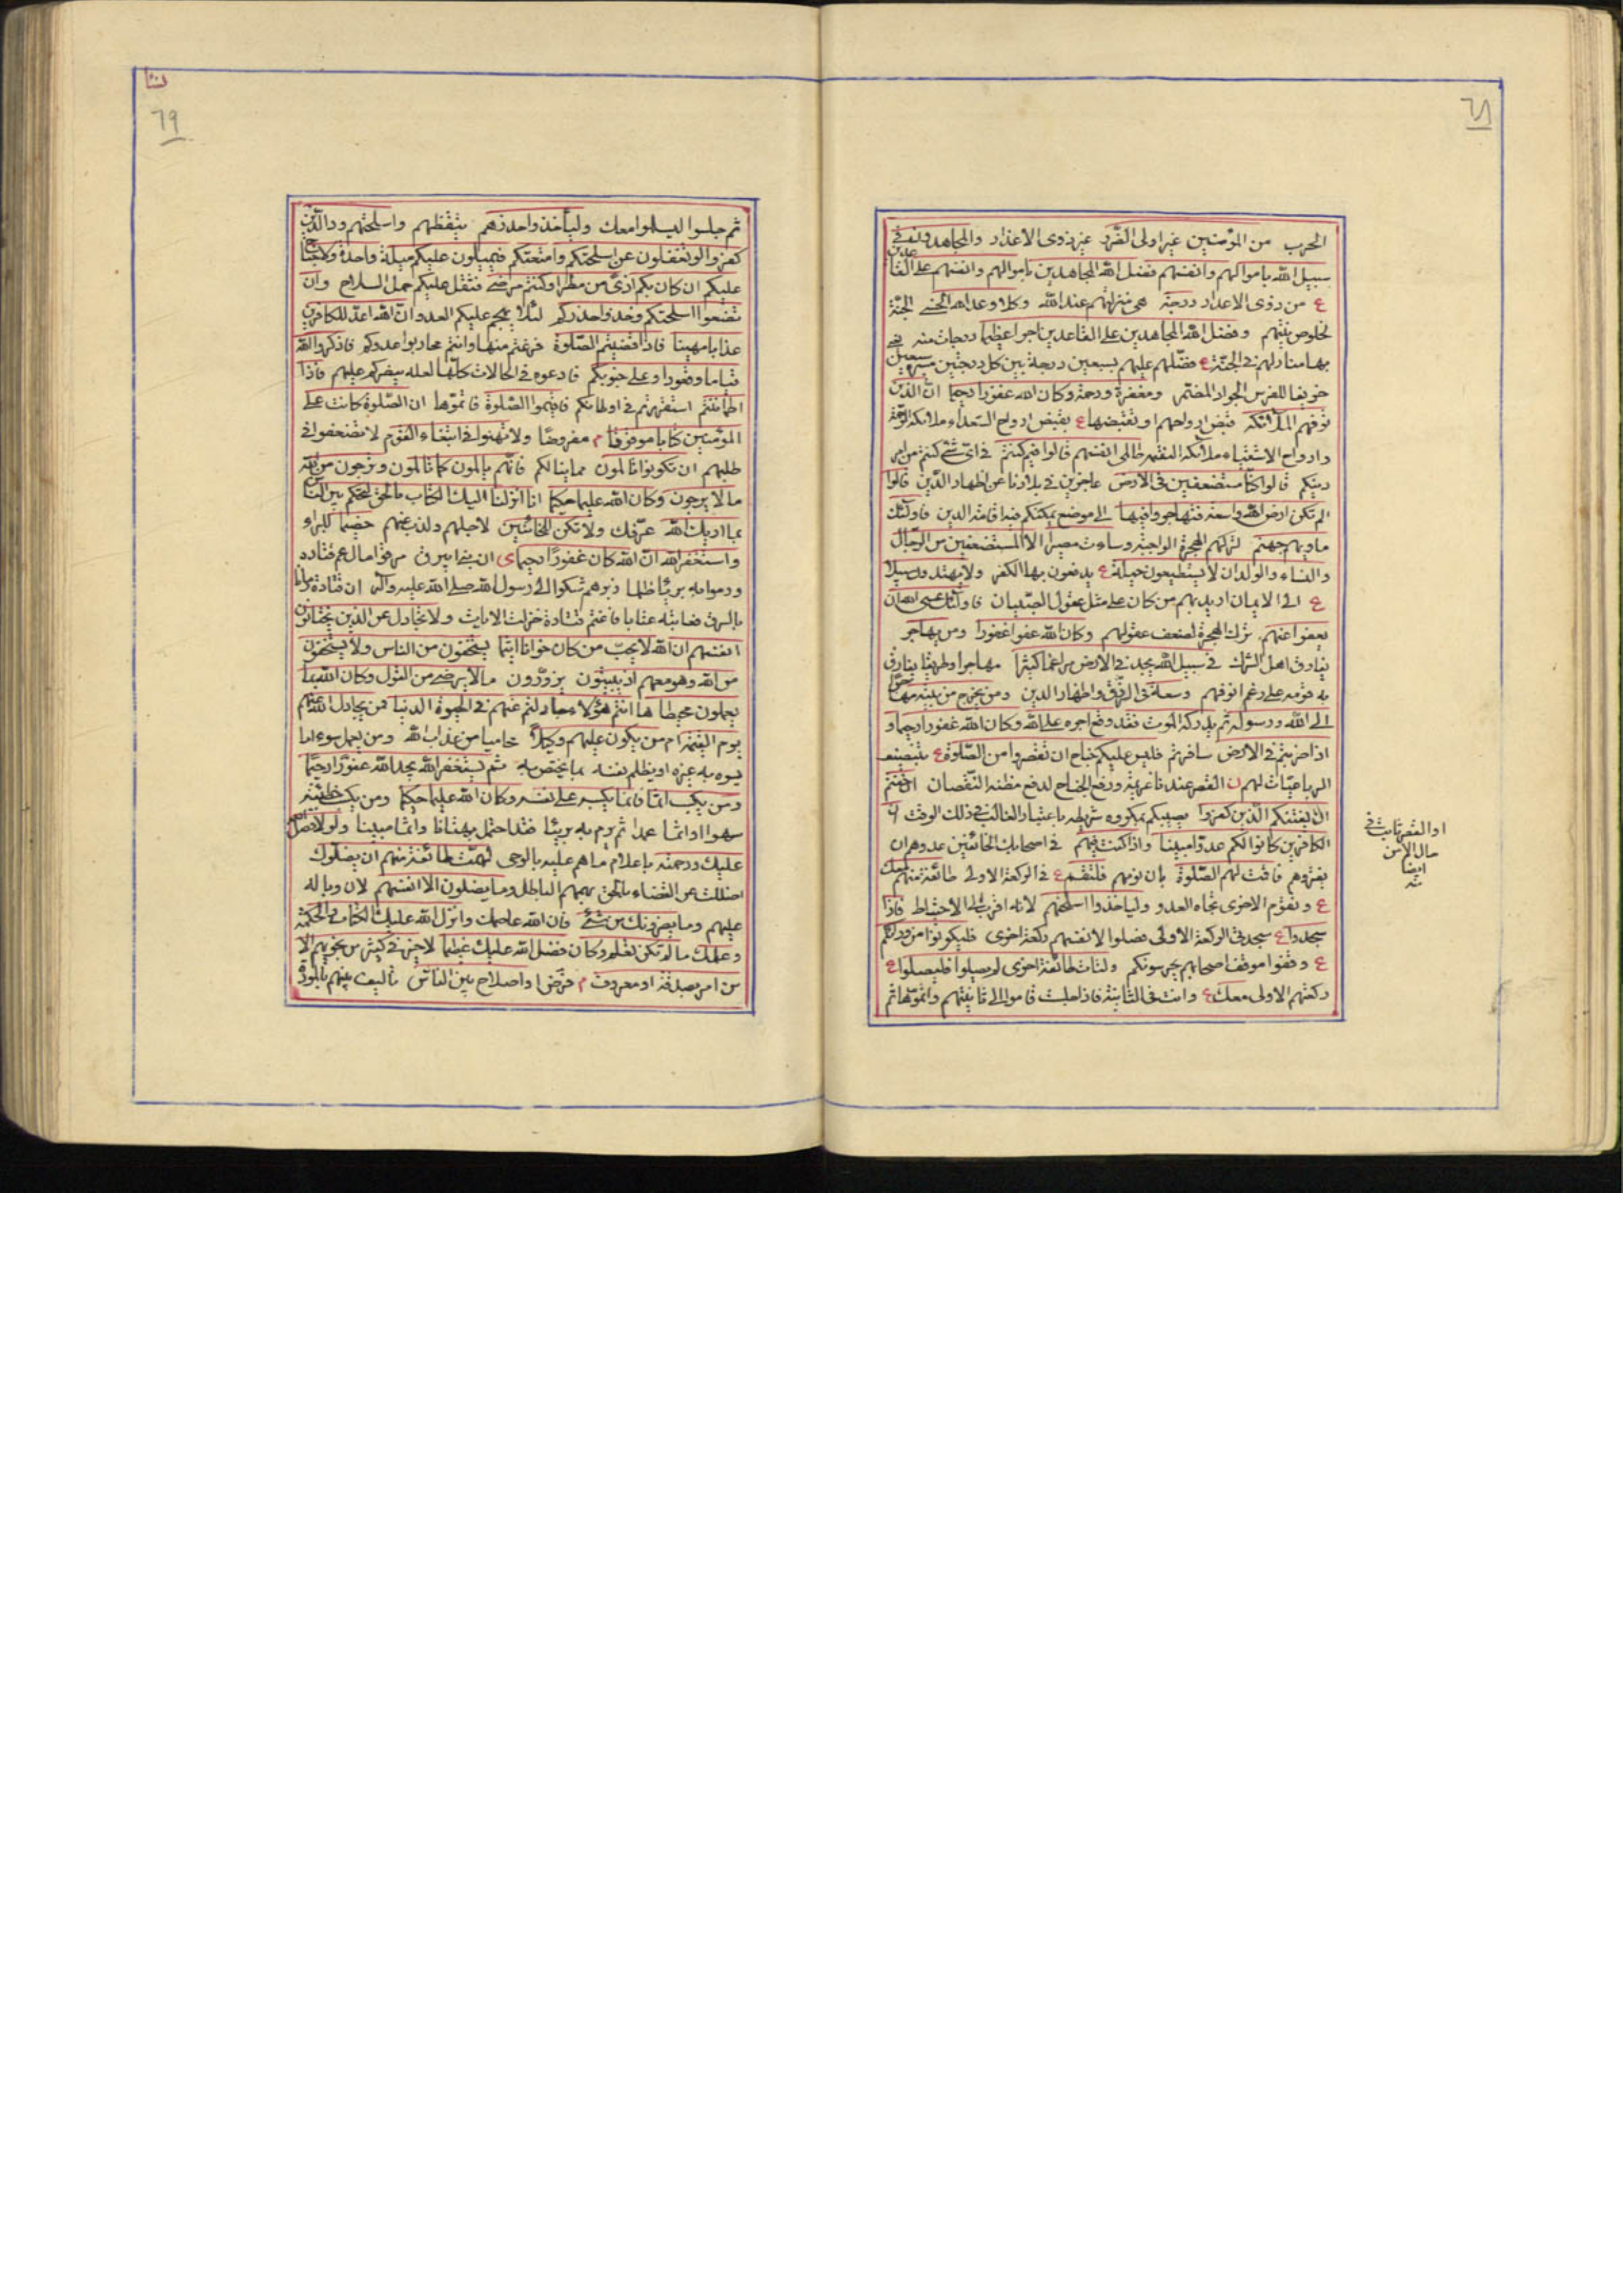 ٦٨
الحرب من المؤمنين غير اولى الضرر غير ذوى الاعذار والمجاهدون فى
سبيل الله باموالهم وانفسهم فضل الله المجاهدين باموالهم وانفسهم على القاعدين
ع من ذوى الاعذار درجة هى منزلتهم عند الله وكلا وعد الله الحسنى الجنة
لخلوص نيتهم وفضل الله المجاهدين على القاعدين اجرا عظيما درجات منه
بها منازلهم فى الجنة ع فضلهم عليهم بسبعين درجة بين كل درجتين مسير سبعين
خريفا للفرس الجواد المضمر ومغفرة ورحمة وكان الله غفورا رحيما ان الذين
توفيهم الملائكة قبض ارواحهم او تقبضها ع يقبض ارواح السعداء ملائكة الرحمة
وارواح الاشقياء ملائكة النقمة ظالمى انفسهم قالوا فيم كنتم فى اى شئ كنتم من امر
دينكم قالوا كنا مستضعفين فى الارض عاجزين فى بلادنا عن اظهار الدين قالوا
الم تكن ارض الله واسعة فتهاجروا فيها الى موضع يمكنكم فيه اقامة الدين فاولئك
ماويهم جهنم لتركهم الهجرة الواجبة وساءت مصيرا الا المستضعفين من الرجال
والنساء والولدان لا يستطيعون حيلة ع يدفعون بها الكفر ولا يهتدون سبيلا
ع الى الايمان اريد بهم من كان على مثل عقول الصبيان فاولئك عسى الله ان
يعفو اعنهم بترك الهجرة لضعف عقولهم وكان الله عفوا غفورا ومن يهاجر
يفارق اهل الشرك فى سبيل الله يجد فى الارض مراغما كثيرا مهاجرا وطريقا يفارق
به قومه على رغم انوفهم وسعة فى الرزق واظهار الدين ومن يخرج من بيته مهاجرا
الى الله ورسوله ثم يدركه الموت فقد وقع اجره على الله وكان الله غفورا رحيما و
اذا ضربتم فى الارض سافرتم فليس عليكم جناح ان تقصروا من الصلوة ع بتنصيف
الرباعيات لهم ن القصر عندنا عزيمة ورفع الجناح لدفع مظنة النقصان ان خفتم
ان يفتنكم الذين كفروا يصيبكم بمكروه شرطه باعتبار الغالب فى ذلك الوقت ان
الكافرين كانوا لكم عدوا مبينا واذا كنت فيهم فى اصحابك الخائفين عدوهم ان
يغزوهم فاقمت لهم الصلوة بان تؤمهم فلتقم ع فى الركعة الاولى طائفة منهم معك
ع وتقوم الاخرى تجاه العدو وليأخذوا اسلحتهم لانه اقرب الى الاحتياط فاذا
سجدوا ع سجدتى الركعة الاولى فصلوا لانفسهم ركعة اخرى فليكونوا من ورائكم
ع وقفوا موقف اصحابهم يحرسونكم ولتات طائفة اخرى لم يصلوا فليصلوا ع
ركعتهم الاولى معك ع وانت فى الثانية فاذا جلست قاموا الى ثانيتهم واتموها ثم
او القصر ثابت فى
حال الامن
ايضا
منه
٦٩
ثم جلسوا ليسلموا معك وليأخذوا حذرهم تيقظهم واسلحتهم ود الذين
كفروا لو تغفلون عن اسلحتكم وامتعتكم فيميلون عليكم ميلة واحدة ولا جناح
عليكم ان كان بكم اذى من مطر او كنتم مرضى فثقل عليكم حمل السلاح وان
تضعوا اسلحتكم وخذوا حذركم لئلا يهجم عليكم العدو ان الله اعد للكافرين
عذابا مهينا فاذا قضيتم الصلوة فرغتم منها وانتم محاربوا عدوكم فاذكروا الله
قياما وقعودا وعلى جنوبكم فادعوه فى الحالات كلها لعله ينصركم عليهم فاذا
اطماننتم استقررتم فى اوطانكم فاقيموا الصلوة فاتموها ان الصلوة كانت على
المؤمنين كتابا موقوتا م مفروضا ولا تهنوا فى ابتغاء القوم لا تضعفوا فى
طلبهم ان تكونوا تالمون مما ينالكم فانهم يالمون كما تالمون وترجون من الله
ما لا يرجون وكان الله عليما حكيما انا انزلنا اليك الكتاب بالحق لتحكم بين الناس
بما اريك الله عرفك ولا تكن للخائنين لاجلهم والذب عنهم خصيما للبراء
واستغفر الله ان الله كان غفورا رحيما ى ان بنى ابيرق سرقوا مال عم قتاده
ورموا به بريئا ظلما فبرهم شكوا الى رسول الله صلى الله عليه واله ان قتادة رمانا
بالسرق فعاتبه عتابا فاغتم قتادة فنزلت الايات ولا تجادل عن الذين يختانون
انفسهم ان الله لا يحب من كان خوانا اثيما يستخفون من الناس ولا يستخفون
من الله وهو معهم اذ يبيتون يزورون ما لا يرضى من القول وكان الله بما
يعملون محيطا ها انتم هؤلاء جادلتم عنهم فى الحيوة الدنيا فمن يجادل الله عنهم
يوم القيمة ام من يكون عليهم وكيلا حاميا من عذاب الله ومن يعمل سوءا ما
يسوء به غيره او يظلم نفسه بما يختص به ثم يستغفر الله يجد الله غفورا رحيما
ومن يكسب اثما فانما يكسبه على نفسه وكان الله عليما حكيما ومن يكسب خطيئة
سهوا او اثما عمدا ثم يرم به بريئا فقد احتمل بهتانا واثما مبينا ولولا فضل الله
عليك ورحمته باعلام ما هم عليه بالوحى لهمت طائفة منهم ان يضلوك
اضلك عن القضاء بالحق الباطل وما يضلون الا انفسهم لان وباله
عليهم وما يضرونك من شئ فان الله عاصمك وانزل الله عليك الكتاب والحكمة
وعلمك ما لم تكن تعلم وكان فضل الله عليك عظيما لا خير فى كثير من نجويهم الا
من امر بصدقة او معروف م فرض او اصلاح بين الناس تاليف بينهم بالمودة